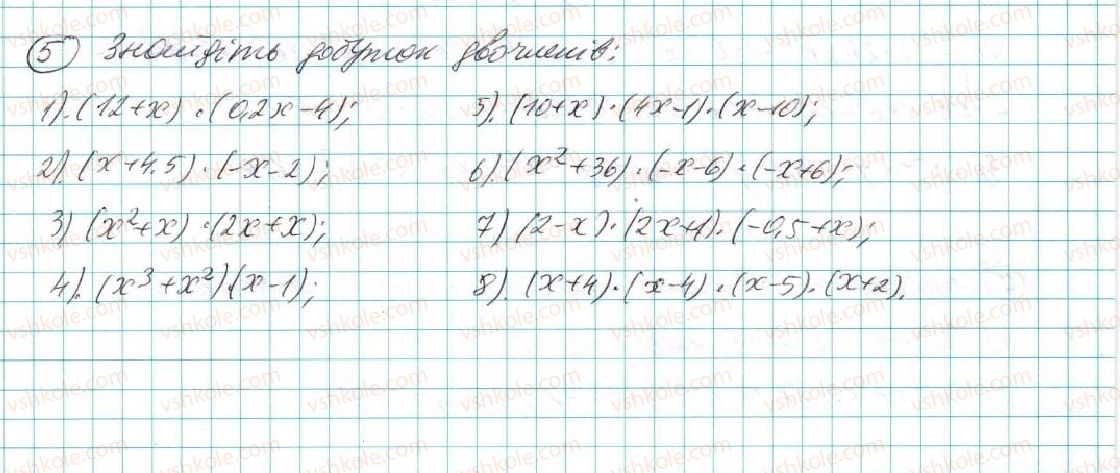 5) Знайдіть добуток двочленів:
1). (12+x)·(0,2x-4);
2). (x+4.5)·(-x-2);
3) (x²+x)·(2x+x);
4). (x³+x²)·(x-1);
5). (10+x)·(4x-1)·(x-10);
6). (x²+36)·(-x-6)·(-x+6);
7) (2-x)·(2x+1)·(-0,5+x);
8). (x+4)·(x-4)·(x-5)·(x+2).
vshkole.com